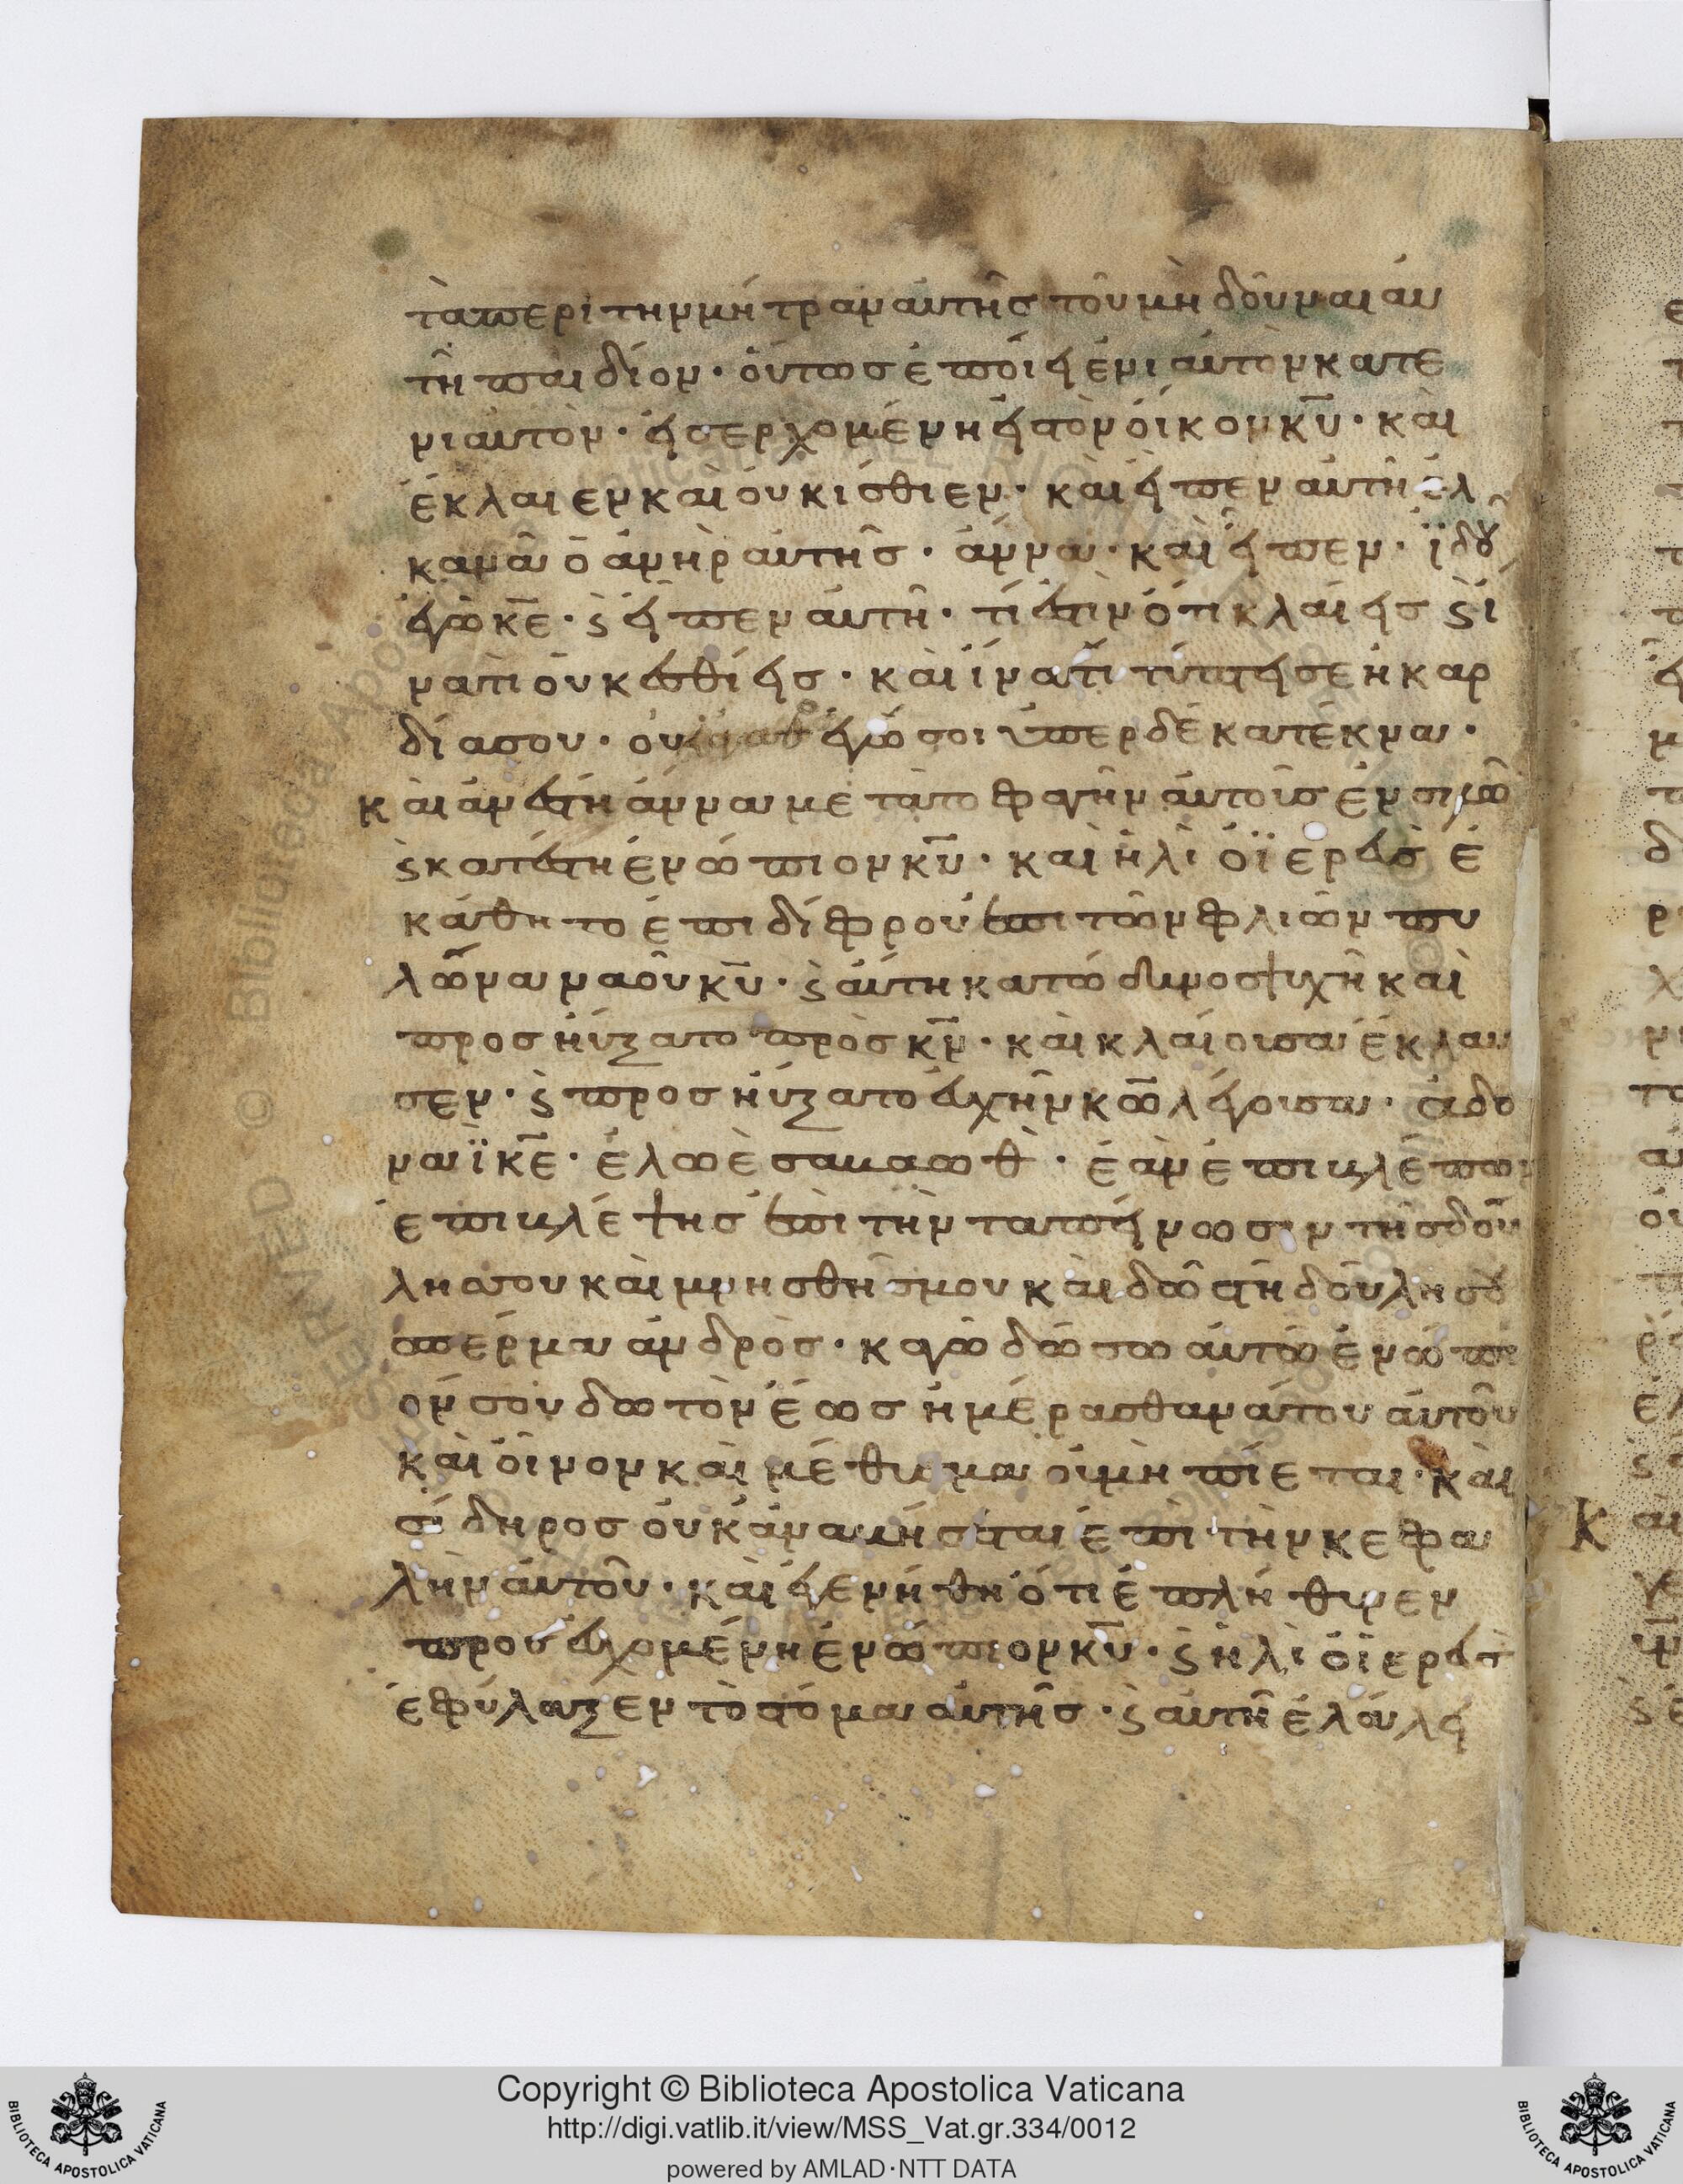 τὰ περὶ τὴν μήτραν αυτῆς τοῦ μὴ δοῦναι αυ
τῆ παιδίον· ὅυτως ἐποίει ἐνιαυτὸν κατε
νιαυτὸν· εἰσερχομένη εἰς τὸν οἶκον κῡ· καὶ
ἔκλαιεν καὶ ουκ ίσθιεν· καὶ εἶπεν αυτῆ ἑλ
κανᾶ ὁ ἀνὴρ αυτῆς· ἄννα· καὶ εἶπεν· ϊδοὺ
ἐγὼ κε̄· ϛ̀ εἶπεν αυτῆ· τί ἐστιν ὅτι κλαίεις ϛ̀ ἵ
νατι οὐκ ἐσθίεις· καὶ ἵνατί τύπτει σε ἡ καρ
δία σου· οὐκ ἀγαθὸς ἐγώ σοι ὑπερ δέκα τέκνα·
καὶ ἀνέστη ἄννα μετὰ το φαγεῖν ἀυτοὺς ἐν σιλὼ
ϛ̀ κατέστη ἐνώπιον κῡ· καὶ ἡλὶ ὁ ϊερεὺς ἐ
κάθητο ἐπι δίφρου ἐπι τῶν φλιῶν πυ
λῶνα ναοῦ κῡ· ϛ̀ αυτη κατώδυνος ψυχῆ καὶ
προσηύξατο πρὸς κν̄· καὶ κλαίουσα ἔκλαυ
σεν· ϛ̀ προσηύξατο ἐυχὴν κω̄ λέγουσα· ἀδο
ναϊ κε̄· ἐλωὲ σαβαωθ· ἐὰν ἐπιβλέπων
ἐπιβλέψης ἐπὶ τὴν ταπείνωσιν τῆς δού
λης σου καὶ μνησθῆς μου καὶ δῶς τῆ δούλη σου
σπέρμα ἀνδρὸς· κἀγὼ δώσω ἀυτὸ ἐνώπι
όν σου δωτὸν ἕως ἡμέρας θανάτου αὐτοῦ
καὶ οἶνον καὶ μέθυσμα οὐ μὴ πίεται· καὶ
σίδηρος οὐκ ἀναβήσεται ἐπὶ τὴν κεφα
λὴν ἀυτοῦ· καὶ ἐγενήθη ὅτι ἐπλήθυνεν
προσευχομένη ἐνώπιον κῡ· ϛ̀ ἡλὶ ὁ ϊερεὺς
ἐφύλαξεν τὸ στόμα ἀυτῆς· ϛ̀ ἀυτὴ ἐλάλει
Copyright © Biblioteca Apostolica Vaticana
http://digi.vatlib.it/view/MSS_Vat.gr.334/0012
powered by AMLAD·NTT DATA